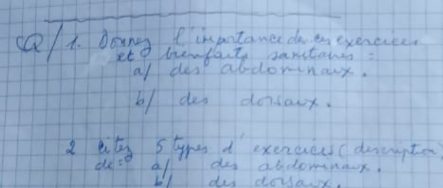 Q/ 1. Donnez l'importance de ces exercices
et bienfaits sanitaires :
a/ des abdominaux.
b/ des dorsaux.
2 citez 5 types d'exercices (description)
de : a/ des abdominaux.
b/ des dorsaux.